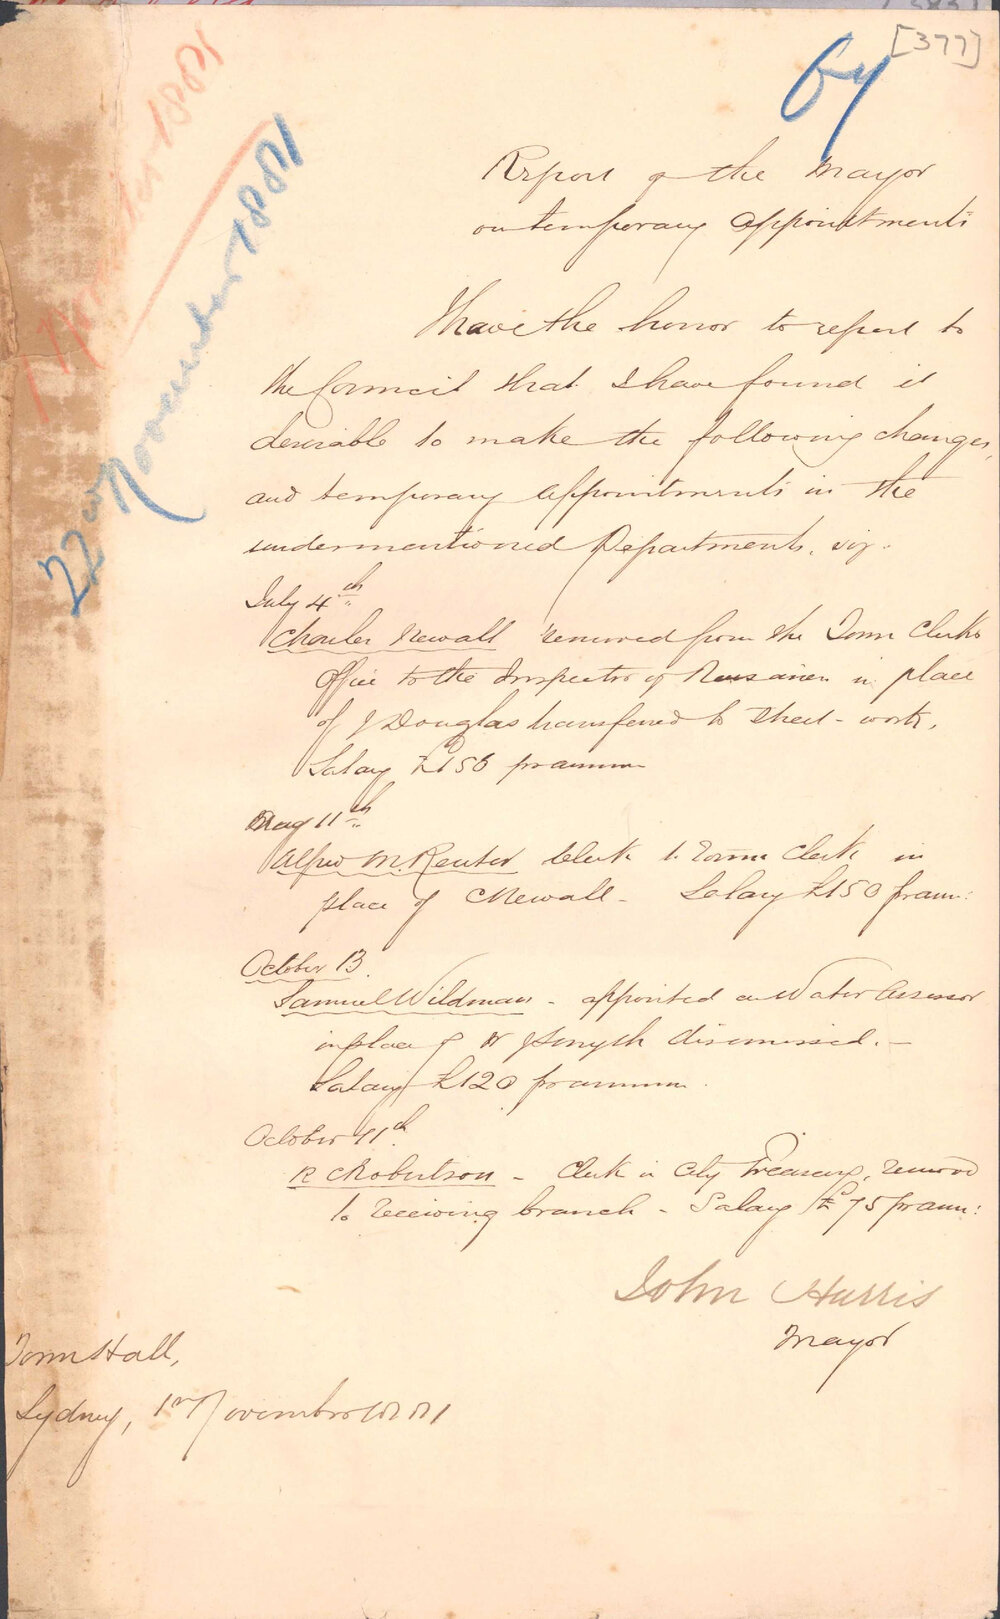 [377]
1 November 1881
22nd November 1881
Report of the Mayor
on temporary appointments
I have the honor to report to
the Council that I have found it
desirable to make the following changes,
and temporary appointments in the
undermentioned Departments. viz.
July 4th
Charles Newall removed from the Town Clerks
Office to the Inspector of Nusances in place
of J Douglas transferred to Street-work.
Salary £156 pr annum
May 11th
Alfred M. Reuter Clerk to Town Clerk in
place of C Newall - Salary £150 pr ann:
October 13.
Samuel Wildman - appointed as Water Assessor
in place of W J Smyth dismissed. -
Salary £120 pr annum.
October 11th
R C Robertson - Clerk in City Treasury, removed
to receiving branch - Salary £75 pr ann:
John Harris
Mayor
Town Hall,
Sydney, 1st November 1881